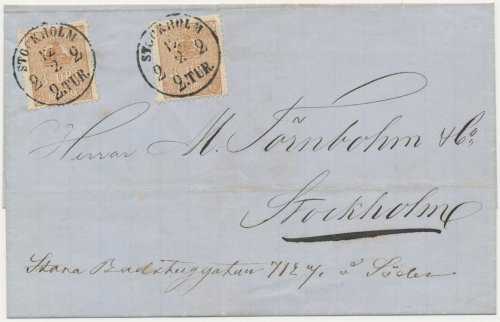 STOCKHOLM
12
2
2 2
2.TUR.
STOCKHOLM
12
2
2 2
2.TUR.
Herrar M. Törnbohm & Co
Stockholm
Stora Badstugugatan 712 å Söder